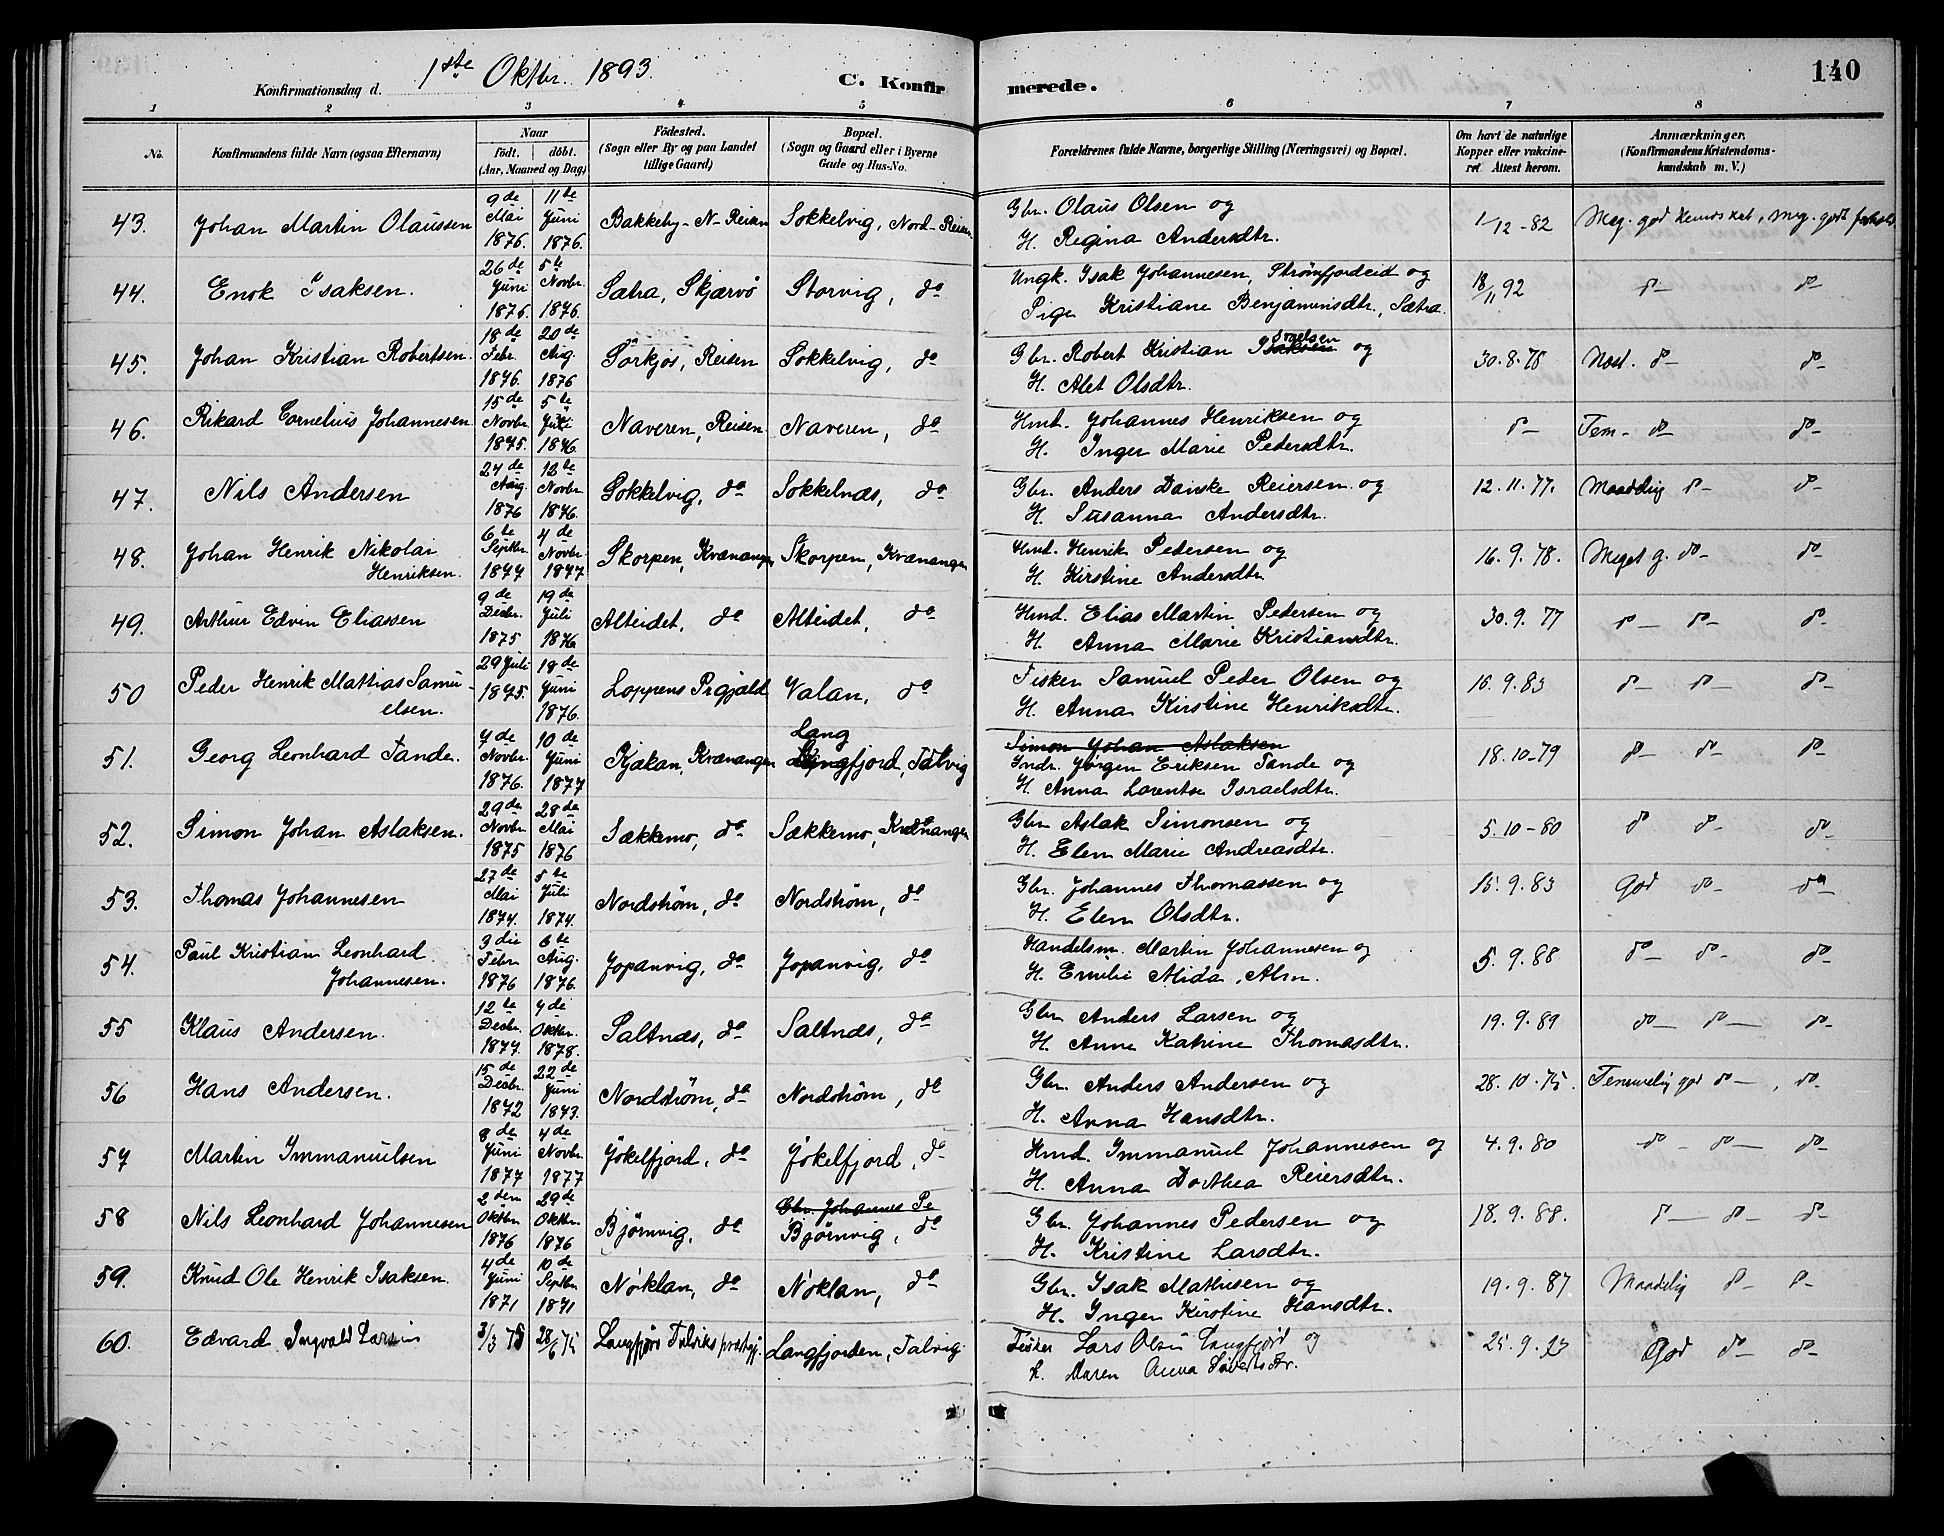 Konfirmationsdag d. 1ste Oktbr. 1893. C. Konfirmerede. 140
1 2 3 4 5 6 7 8
No. Konfirmandens fulde Navn (ogsaa Efternavn) Naar født, døbt. (Aar, Maaned og Dag) Fødested. (Sogn eller By og paa Landet tillige Gaard) Bopæl. (Sogn og Gaard eller i Byerne Gade og Hus-No. Forældrenes fulde Navne, borgerlige Stilling (Næringsvei) og Bopæl. Om havt de naturlige Kopper eller vakcineret. Attest herom. Anmærkninger. (Konfirmandens Kristendomskundskab m. V.)
43. Johan Martin Olaussen 9de Mai 1876. 11te Juni 1876. Bakkeby - N-Reisen Sokkelvig, Nord-Reisen Gbr. Olaus Olsen og H. Regina Andersdtr. 1/12-82 Meg. god
44. Enok Isaksen. 26de Juni 1876. 5te Novbr. 1876. Satra, Skjærvø Storvig, do Ungk. Isak Johannesen, Strømfjordeid og Pige Kristiane Benjaminsdtr., Satra. 18/11 92 do- do-
45. Johan Kristian Robertsen. 18de Febr. 1876. 20de Aug. 1876 Sørkjos, Reisen Sokkelvig, do Gbr. Robert Kristian Isaksen og H. Alet Olsdtr. 30.8.78 do- do-
46. Rikard Cornelius Johannesen 15de Novbr. 1875. 5te Juli 1876. Naveren, Reisen Naveren, do Hmd. Johannes Henriksen og H. Inger Marie Pedersdtr. do- Tem- do- do-
47. Nils Andersen 24de Aug. 1876 12te Novbr. 1876. Sokkelvig, do Sokkelnæs, do Gbr. Anders Danske Reiersen og H. Susanna Andersdtr. 12.11.77. Maadelig do- do-
48. Johan Henrik Nikolai Henriksen. 6te Septbr. 1877 4de Novbr. 1877 Skorpen, Kvænangen Skorpen, Kvænangen Hmd. Henrik Pedersen og H. Kirstine Andersdtr. 16.9.78. Meget g. do- do-
49. Arthur Edvin Eliassen 9de Desbr. 1875 19de Juli 1876 Alteidet, do Alteidet, do Hmd. Elias Martin Pedersen og H. Anna Marie Kristiansdtr. 30.9.77 do- do- do-
50 Peder Henrik Mattias Samuelsen. 29 Juli 1875. 18de Juni 1876. Loppens Prgjæld Valan, do Fisker Samuel Peder Olsen og H. Anna Kirstine Henriksdtr. 15.9.83 do- do- do-
51. Georg Leonhard Tande. 7de Novbr. 1876. 10de Juni 1877 Kjækan, Kvænangen Langfjord, Talvig Simon Johan Aslaksen Indr. Jørgen Eriksen Tande og H. Anna Lorentse Israelsdtr. 18.10-79 do- do- do-
52. Simon Johan Aslaksen. 29de Novbr. 1875 28de Mai 1876 Sækkemo, do Sækkemo, Kvænangen Gbr. Aslak Simonsen og H. Elen Marie Andreasdtr. 5.10-80 do do- do-
53. Thomas Johannesen 27de Mai 1874. 5te Juli 1874. Nordstrøm, do Nordstrøm, do Gbr. Johannes Thomassen og H. Elen Olsdtr. 15.9.83 God do- do
54. Paul Kristian Leonhard Johannesen. 3die Febr. 1876 6te Aug. 1876. Jopanvig, do Jopanvig, do Handelsm. Martin Johannesen og H. Emilie Alida Alm. 5.9.88 do- do- do-
55 Klaus Andersen. 12te Desbr. 1877. 7de Oktbr. 1878. Saltnæs, do Saltnæs, do Gbr. Anders Larsen og H. Anne Katrine Thomasdtr. 19.9.89 do- do- do-
56 Hans Andersen. 15de Desbr. 1872 22de Juni 1873. Nordstrøm, do Nordstrøm, do Gbr. Anders Andersen og H. Anna Hansdtr. 28.10.75. Temmelig god do-, do-
57 Martin Immanuelsen 8de Juni 1877 4de Novbr. 1877 Jøkelfjord, do Jøkelfjord, do Hmd. Immanuel Johannesen og H. Anna Dorthea Reiersdtr. 4.9.80 do- do- do-
58 Nils Leonhard Johannesen 2den Oktbr. 1876 29de Oktbr. 1876 Bjørnvig, do Gbr. Johannes Pe Bjørnvig, do Gbr. Johannes Pedersen og H. Kristine Larsdtr. 18.9.88. do- do- do-
59. Knud Ole Henrik Isaksen. 4de Juni 1871 10de Septbr. 1871 Nøklan, do Nøklan, do Gbr. Isak Mathisen og H. Inger Kirstine Hansdtr. 19.9.87 Maadelig do- do-
60. Edvard Ingvald Larsen 3/3 75 28/6 75 Langfjord Talviks præstgj. Langfjorden, Talvig. Fisker Lars Olsen Langfjord og H. Maren Anna Sivertsdtr. 25.9.93 God do- do-